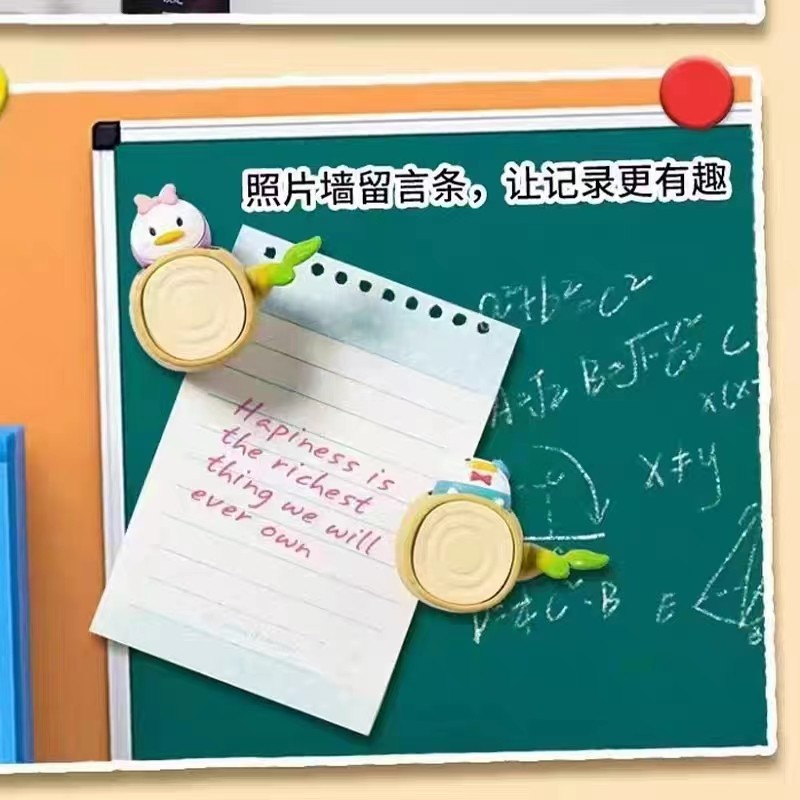 照片墙留言条，让记录更有趣
Hapiness is
the richest
thing we will
ever own
a²+b²=c²
x≠y